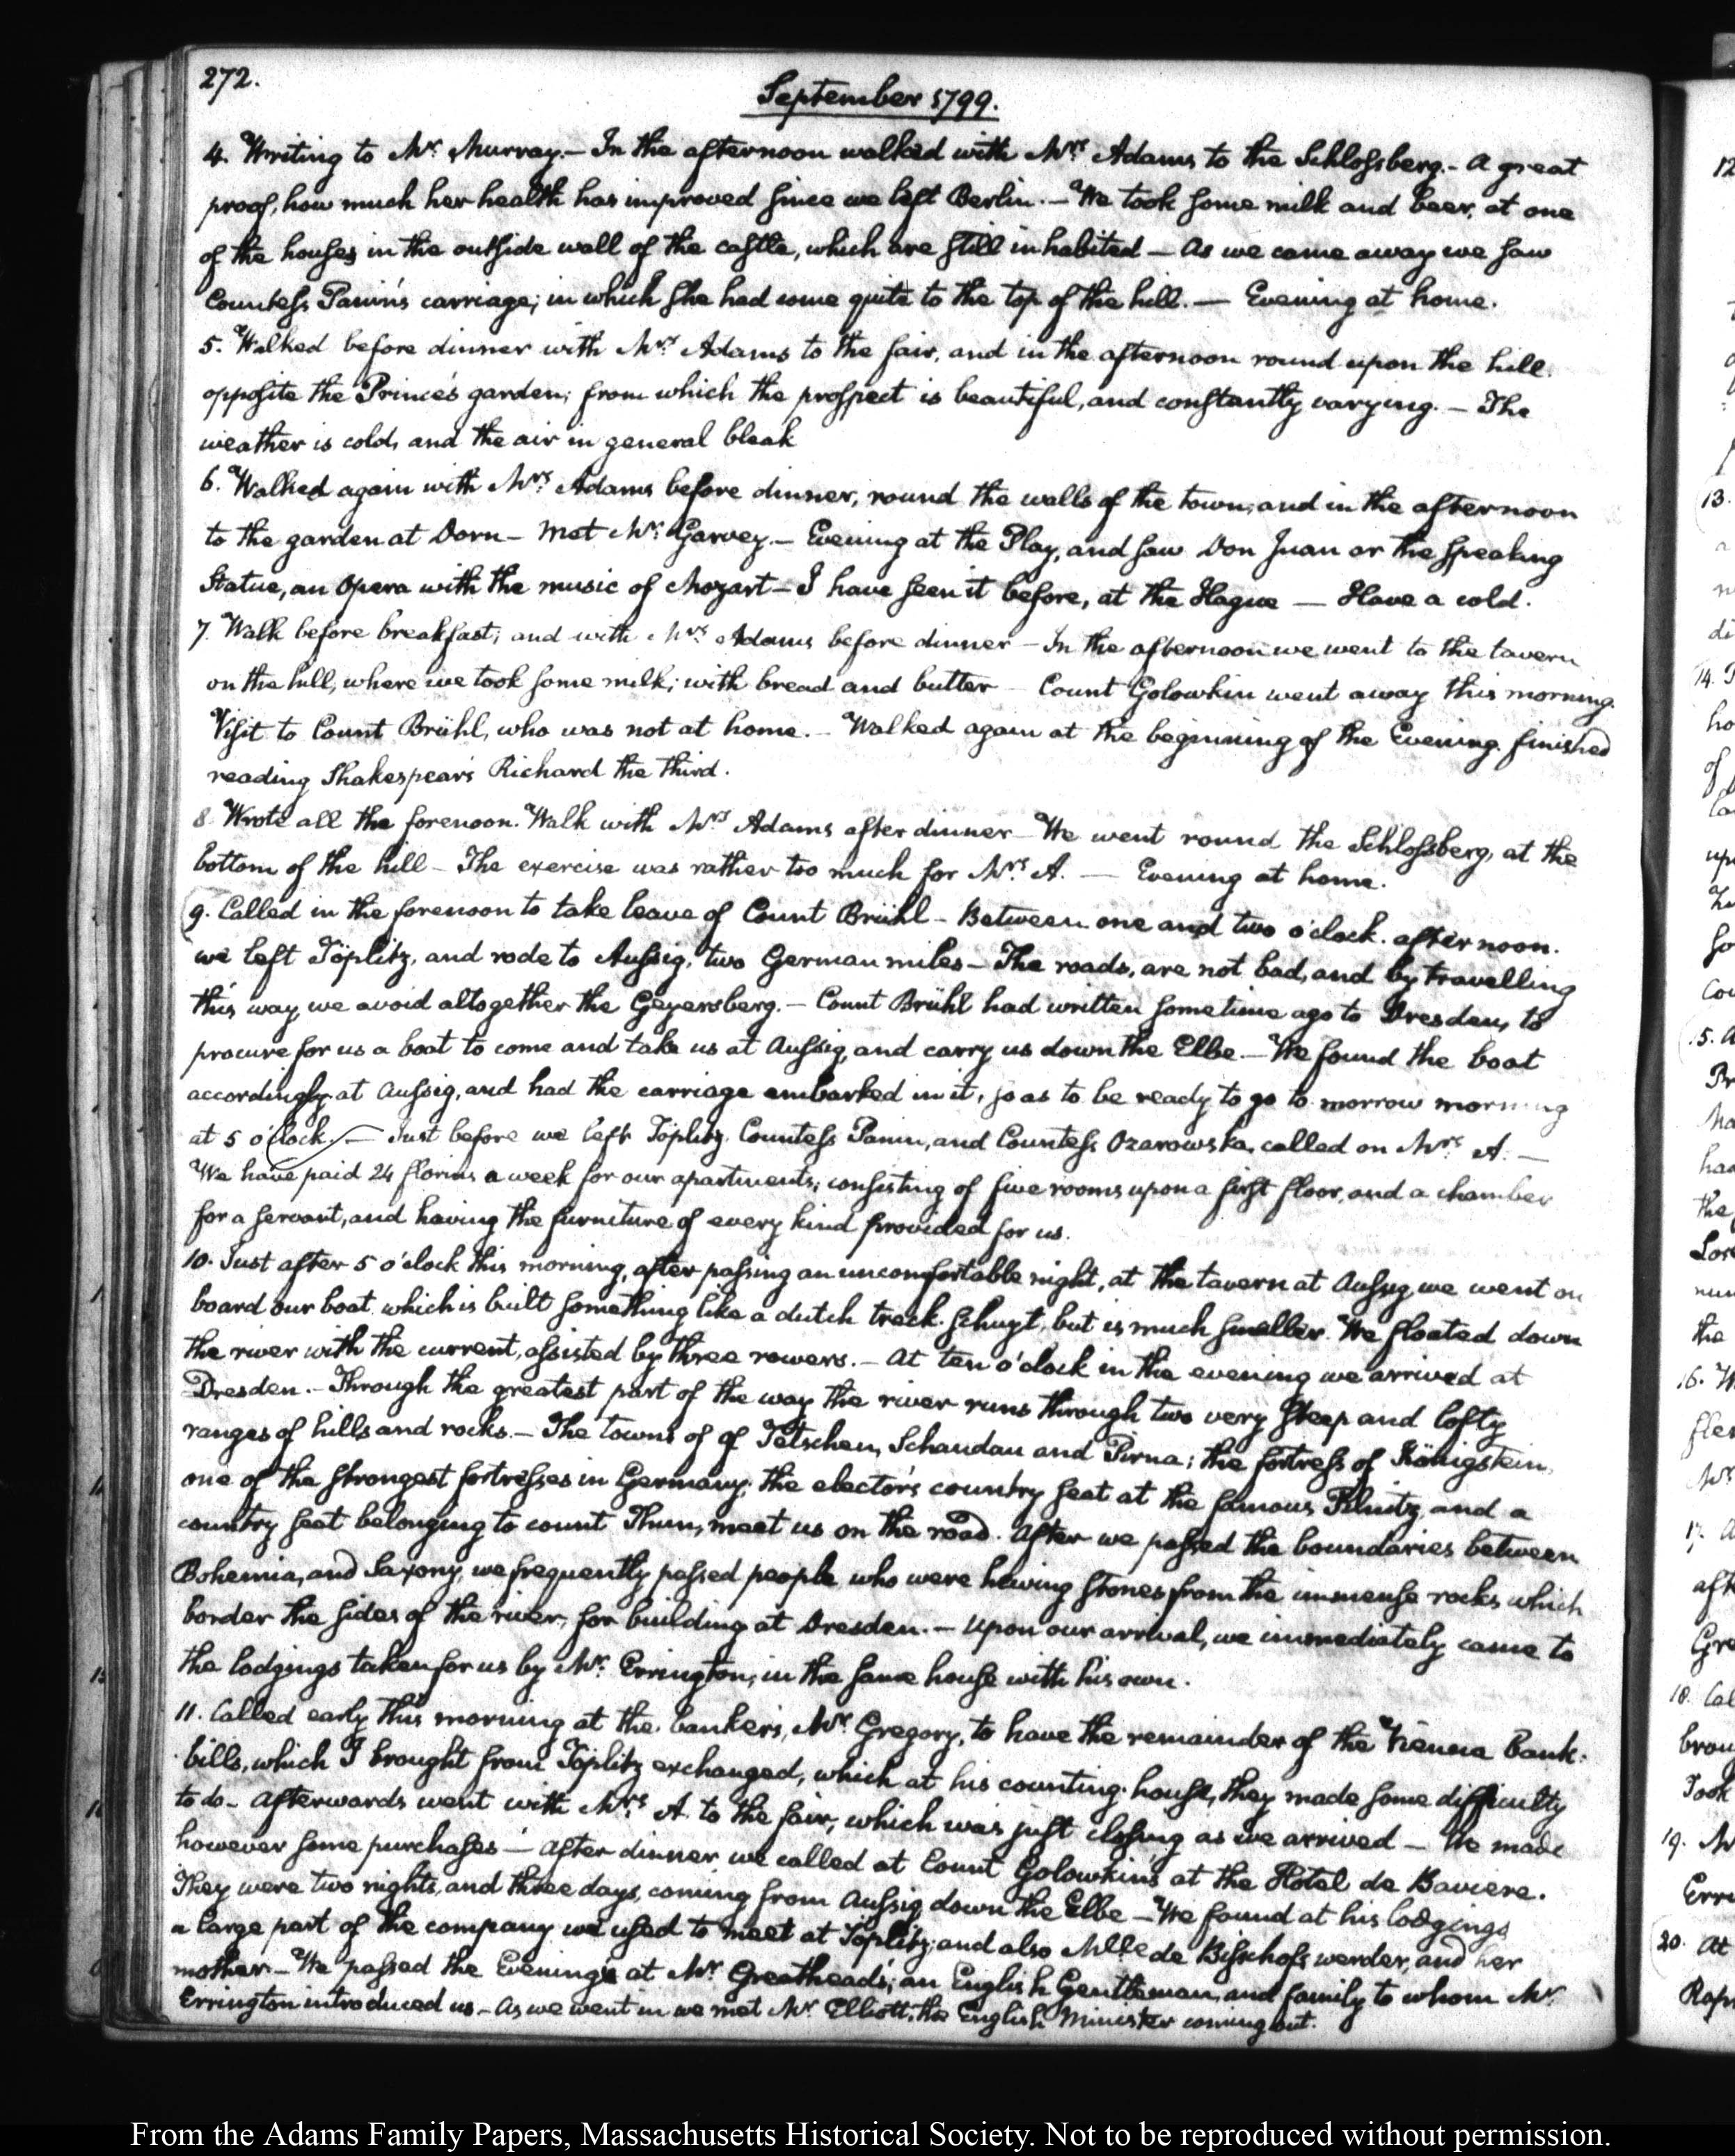 272.
September 1799.
4. Writing to Mr. Murray.— In the afternoon walked with Mrs. Adams to the Schlossberg.— A great
proof, how much her health has improved since we left Berlin.— We took some milk and beer, at one
of the houses in the outside wall of the castle, which are still inhabited — As we came away we saw
Countess Panin's carriage; in which she had come quite to the top of the hill. — Evening at home.
5. Walked before dinner with Mrs. Adams to the fair, and in the afternoon round upon the hill
opposite the Prince's garden; from which the prospect is beautiful, and constantly varying. — The
weather is cold, and the air in general bleak
6. Walked again with Mrs. Adams before dinner, round the walls of the town, and in the afternoon
to the garden at Dorn — Met Mr. Garvey.— Evening at the Play, and saw Don Juan or the speaking
Statue, an Opera with the music of Mozart — I have seen it before, at the Hague — Have a cold.
7. Walk before breakfast; and with Mrs. Adams before dinner — In the afternoon we went to the tavern
on the hill, where we took some milk; with bread and butter — Count Golowkin went away this morning.
Visit to Count Brühl, who was not at home. — Walked again at the beginning of the Evening. finished
reading Shakespear's Richard the third.
8. Wrote all the forenoon. Walk with Mrs. Adams after dinner — We went round the Schlossberg, at the
bottom of the hill — The exercise was rather too much for Mrs. A. — Evening at home.
9. Called in the forenoon to take leave of Count Brühl — Between one and two o'clock. afternoon.
we left Töplitz, and rode to Aussig, two German miles — The roads, are not bad, and by travelling
this way we avoid altogether the Geyersberg. — Count Brühl had written sometime ago to Dresden, to
procure for us a boat to come and take us at Aussig, and carry us down the Elbe. — We found the boat
accordingly at Aussig, and had the carriage embarked in it, so as to be ready to go to morrow morning
at 5 o'clock. — Just before we left Töplitz Countess Panin, and Countess Ozarowska, called on Mrs. A. —
We have paid 24 florins a week for our apartments; consisting of five rooms upon a first floor, and a chamber
for a servant, and having the furniture of every kind provided for us.
10. Just after 5 o'clock this morning, after passing an uncomfortable night, at the tavern at Aussig we went on
board our boat, which is built something like a dutch treck-schuyt, but is much smaller. We floated down
the river with the current, assisted by three rowers. — At ten o'clock in the evening we arrived at
Dresden. — Through the greatest part of the way the river runs through two very steep and lofty
ranges of hills and rocks. — The towns of of Tetschen, Schandau and Pirna; the fortress of Königstein,
one of the strongest fortresses in Germany; the elector's country seat at the famous Pilnitz, and a
country seat belonging to count Thun, meet us on the road. After we passed the boundaries between
Bohemia, and Saxony, we frequently passed people who were hewing stones from the immense rocks which
border the sides of the river, for building at Dresden. — Upon our arrival, we immediately came to
the lodgings taken for us by Mr. Errington, in the same house with his own.
11. Called early this morning at the banker's, Mr. Gregory, to have the remainder of the Vienna bank-
bills, which I brought from Töplitz exchanged, which at his counting-house, they made some difficulty
to do — Afterwards went with Mrs. A. to the fair, which was just closing as we arrived — We made
however some purchases — After dinner we called at Count Golowkin's at the Hotel de Baviere.
They were two nights, and three days, coming from Aussig down the Elbe — We found at his lodgings
a large part of the company we used to meet at Töplitz, and also Mlle de Bischofswerder, and her
mother. — We passed the Evening at Mr. Greathead's, an English Gentleman, and family to whom Mr.
Errington introduced us — As we went in we met Mr. Elliott, the English Minister coming out.
From the Adams Family Papers, Massachusetts Historical Society. Not to be reproduced without permission.